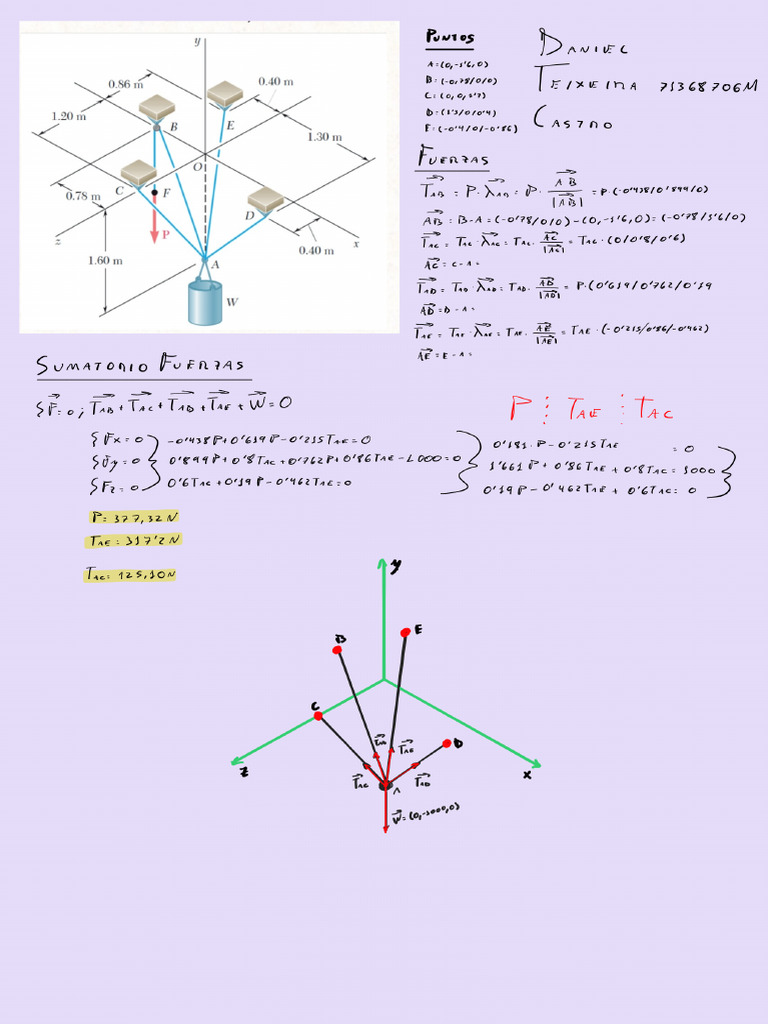 y
0.86 m
0.40 m
1.20 m
B
E
1.30 m
O
C
F
0.78 m
D
P
z
x
0.40 m
1.60 m
A
W
PUNTOS
A=(0,-1'6,0)
B=(-0,78/0/0)
C=(0,0,1'2)
D=(1'3/0/0'4)
E=(-0'4/0/-0'86)
DANIEL
TEIXEIRA 71368706M
CASTRO
FUERZAS
TAB = P·λAB = P· AB/|AB| = P·(-0'438/0'899/0)
AB = B-A = (-0'78/0/0)-(0,-1'6,0)=(-0'78/1'6/0)
TAC = TAC·λAC = TAC· AC/|AC| = TAC·(0/0'8/0'6)
AC = C-A=
TAD = TAD·λAD = TAD· AD/|AD| = P·(0'619/0'762/0'19
AD = D-A=
TAE = TAE·λAE = TAE· AE/|AE| = TAE·(-0'215/0'86/-0'462)
AE = E-A=
SUMATORIO FUERZAS
ΣF=0; TAB+TAC+TAD+TAE+W=0
P ⋮ TAE ⋮ TAC
ΣFx=0 } -0'438P+0'619P-0'215TAE=0
ΣFy=0 } 0'899P+0'8TAC+0'762P+0'86TAE-1000=0
ΣFz=0 } 0'6TAC+0'19P-0'462TAE=0
0'181·P-0'215TAE =0
1'661P+0'86TAE+0'8TAC=1000
0'19P-0'462TAE+0'6TAC=0
P=377,32N
TAE=317'2N
TAC=125,10N
y
B
E
C
TAB
TAE
D
TAC
A
TAD
z
x
W=(0,-1000,0)